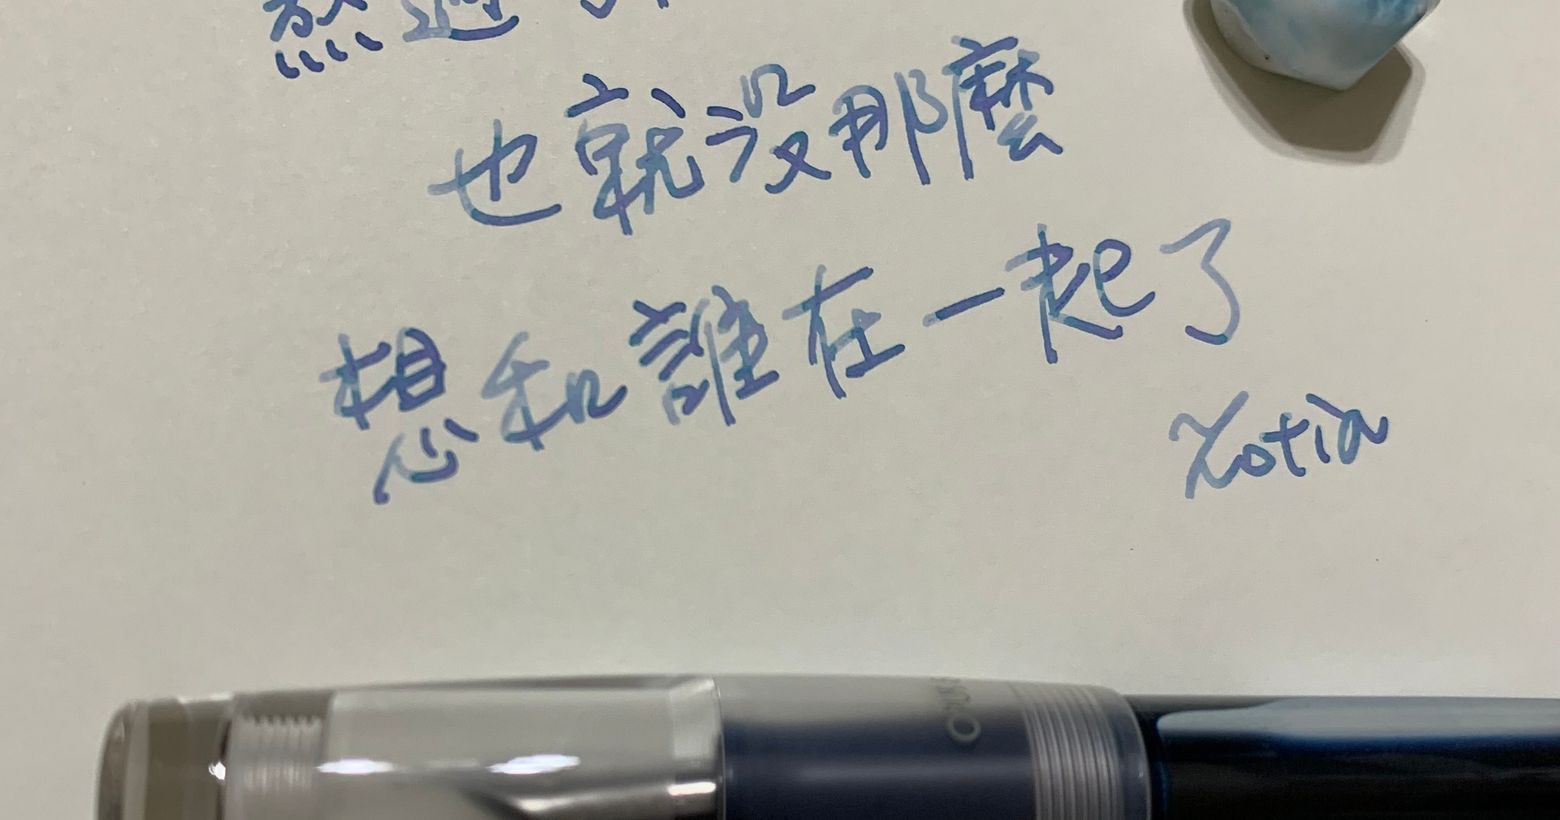 熬過
也就沒那麼
想和誰在一起了
Xotia